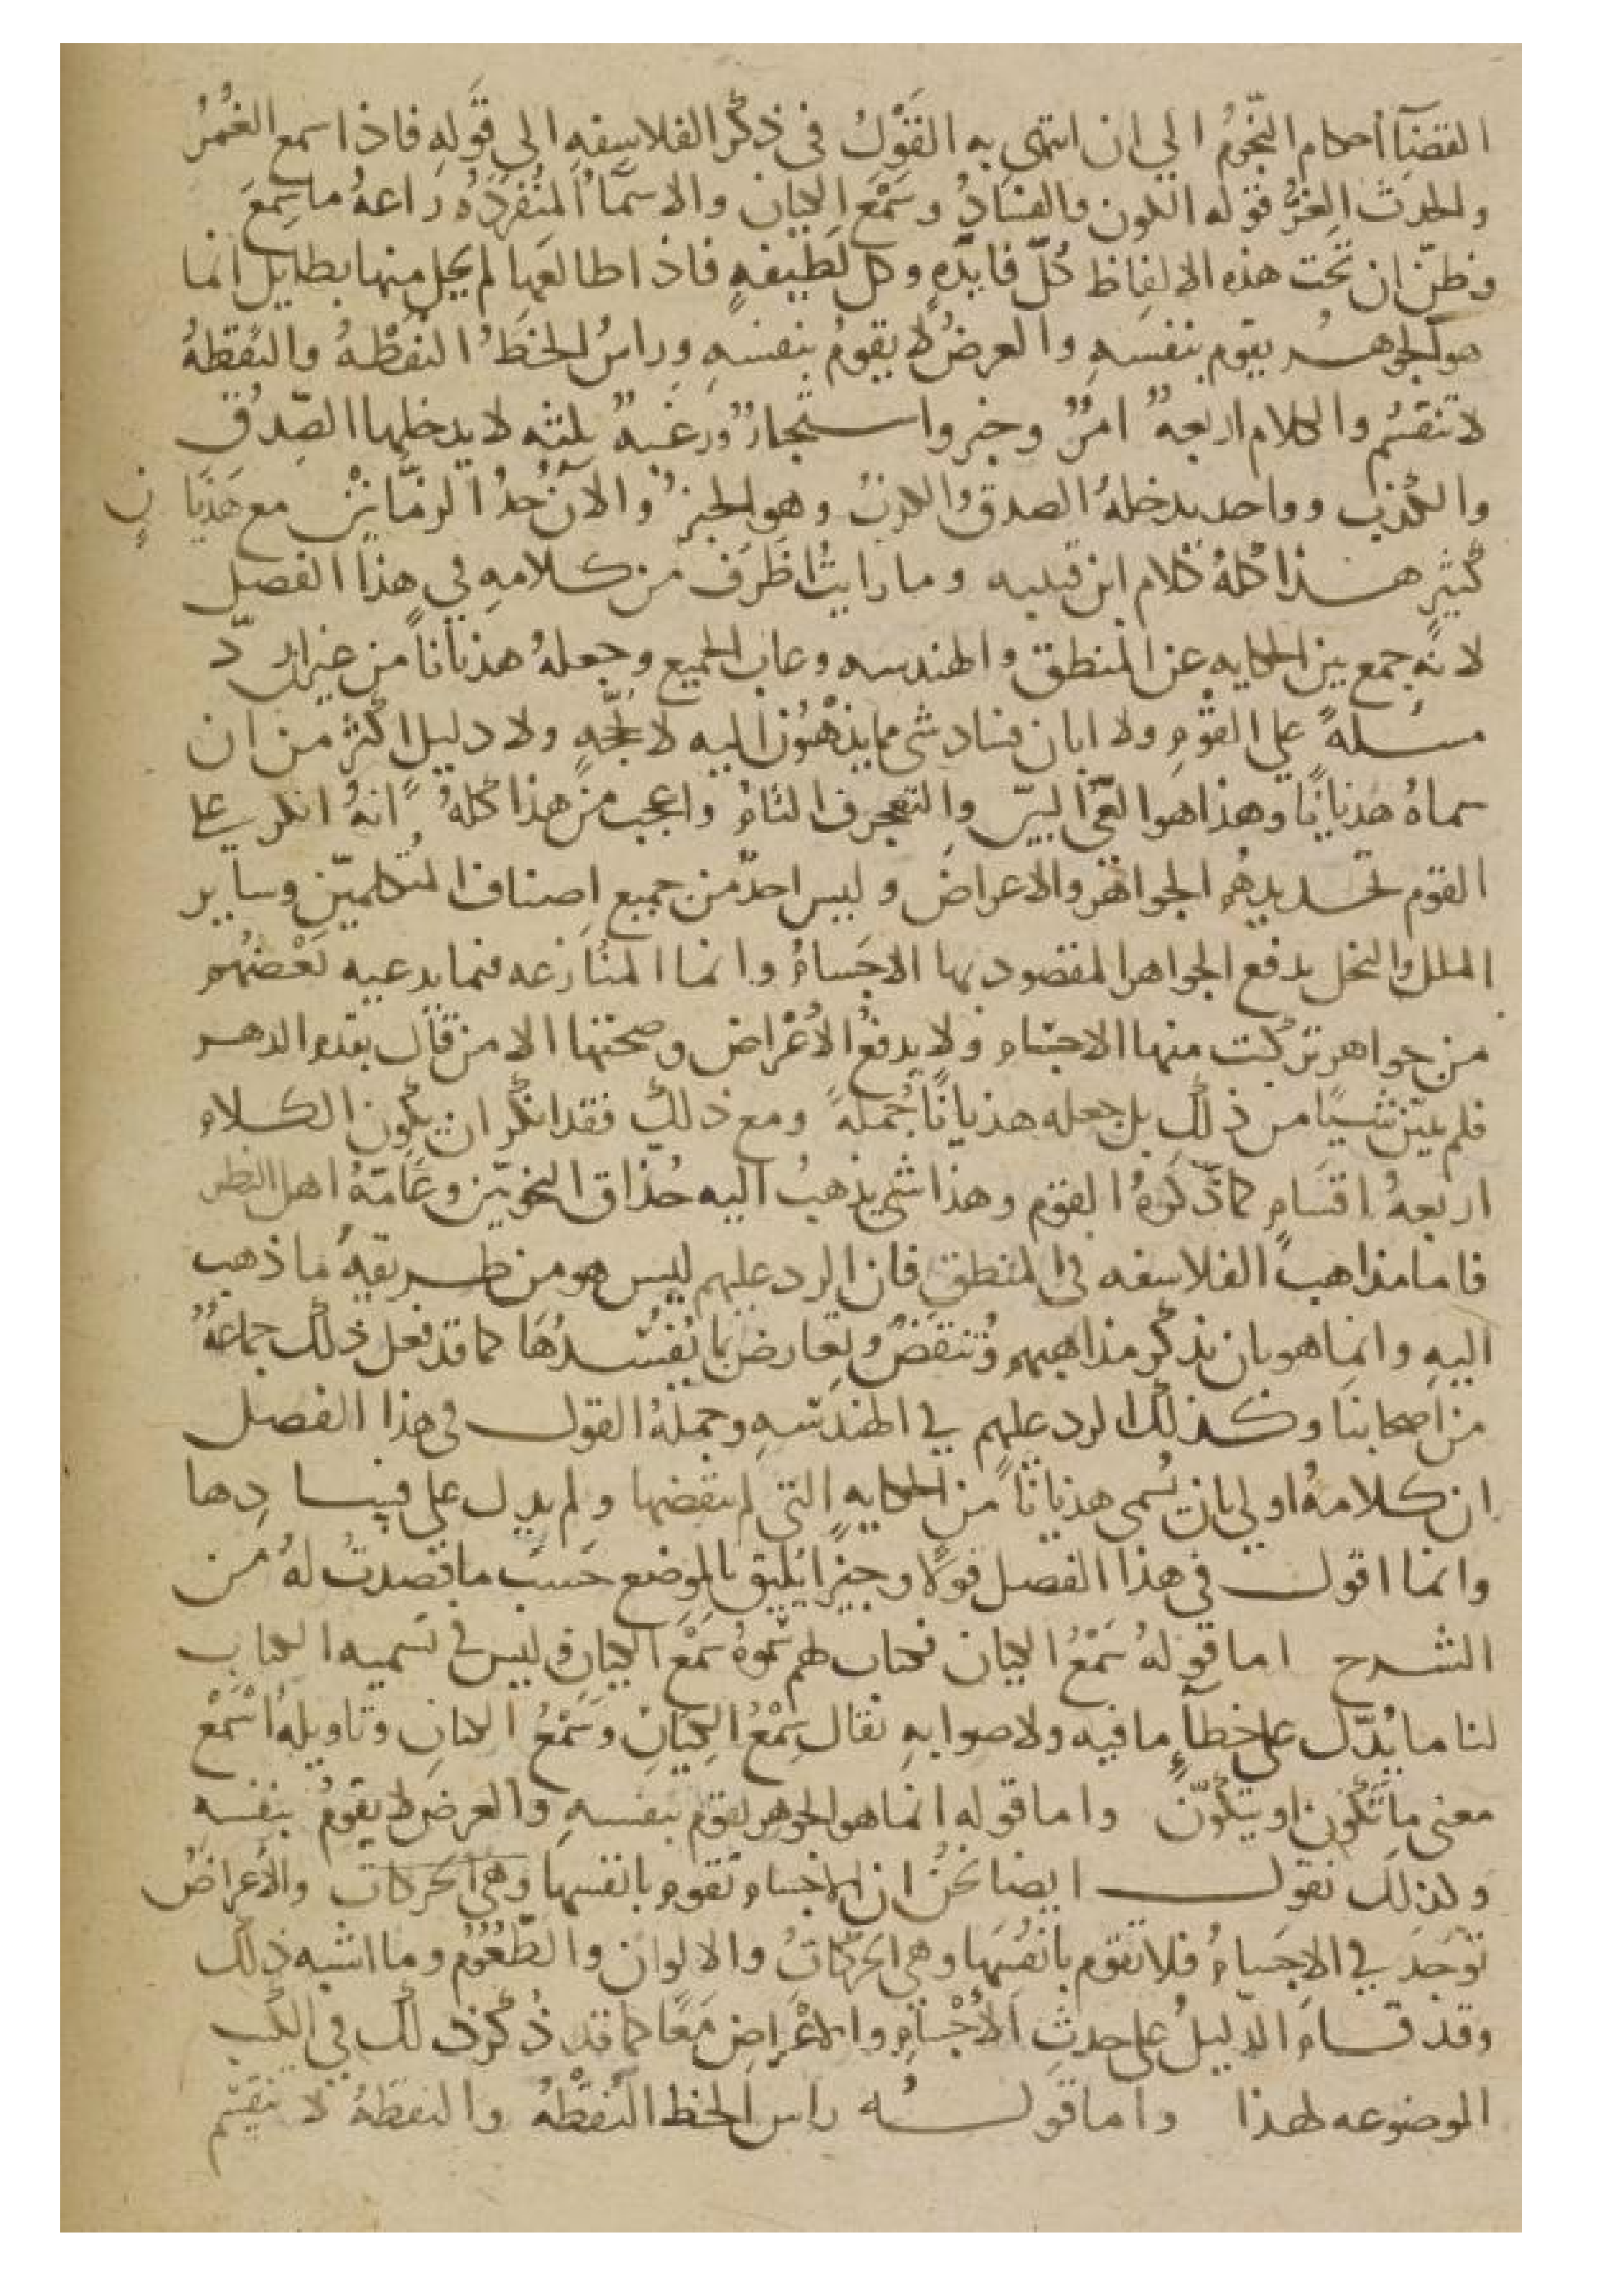 القضآء احكام النجوم الي ان انتهى به القول في ذكر الفلاسفه الي قوله فاذا سمع الغمر
والحدث الغر قوله الكون والفساد وسمع الكيان والاسماء المفرده راعه ما سمع
وظن ان تحت هذه الالفاظ كل فايدة وكل لطيفة فاذا طالعها لم يحل منها بطايل انما
هو الجوهر يقوم بنفسه والعرض لا يقوم بنفسه وراس الخط النقطة والنقطة
لا تنقسم والكلام اربعة امر وخبر واستخبار ورغبة ثلثه لا يدخلها الصدق
والكذب وواحد يدخله الصدق والكذب وهو الخبر والان حد الزمانين مع هذيان
كثير هذا كله كلام ابن قتيبه وما رايت اظرف من كلامه في هذا الفصل
لانه جمع بين الحكايه عن المنطق والهندسه وعاب الجميع وجعله هذيانا من غير ان رد
مسئلة على القوم ولا ابان فساد شي مما يذهبون اليه لا بحجة ولا دليل اكثر من ان
سماه هذيانا وهذا هو العي البين والتعجرف التام واعجب من هذا كله انه انكر على
القوم تحديدهم الجواهر والاعراض وليس احد من جميع اصناف المتكلمين وساير
الملل والنحل يدفع الجواهر المقصود بها الاجسام وانما المنازعه فيما يدعيه بعضهم
من جواهر تركبت منها الاجسام ولا يدفع الاعراض وصحتها الا من قال بقدم الدهر
فلم يبين شيا من ذلك بل جعله هذيانا جملة ومع ذلك فقد انكر ان يكون الكلام
اربعة اقسام كما ذكره القوم وهذا شي يذهب اليه حذاق النحويين وعامة اهل النظر
فاما مذاهب الفلاسفه في المنطق فان الرد عليهم ليس هو من طريقة ما ذهب
اليه وانما هو بان يذكر مذاهبهم وتنقض وتعارض بما يفسدها كما قد فعل ذلك جماعة
من اصحابنا وكذلك الرد عليهم في الهندسه وجملة القول في هذا الفصل
ان كلامه اولي بان يسمى هذيانا من الحكاية التي لم ينقضها ولم يدل على فسادها
وانما اقول في هذا الفصل قولا وجيزا يليق بالموضع حسب ما قصدت له من
الشرح اما قوله سمع الكيان فكتاب لهم سموه سمع الكيان وليس في تسميه الكتاب
لنا ما يدل على خطآء ما فيه ولا صوابه يقال سمع الكيان وسمع الكيان وتاويله اسمع
معنى ما تكون او يتكون واما قوله انما هو الجوهر يقوم بنفسه والعرض لا يقوم بنفسه
وكذلك نقول ايضا نحن ان الاجسام تقوم بانفسها وهي الحركات والاعراض
توجد في الاجسام فلا تقوم بانفسها وهي الحركات والالوان والطعوم وما اشبه ذلك
وقد قام الدليل على حدث الاجسام والاعراض معا كما قد ذكر ذلك في الكتب
الموضوعه لهذا واما قوله راس الخط النقطة والنقطة لا تنقسم